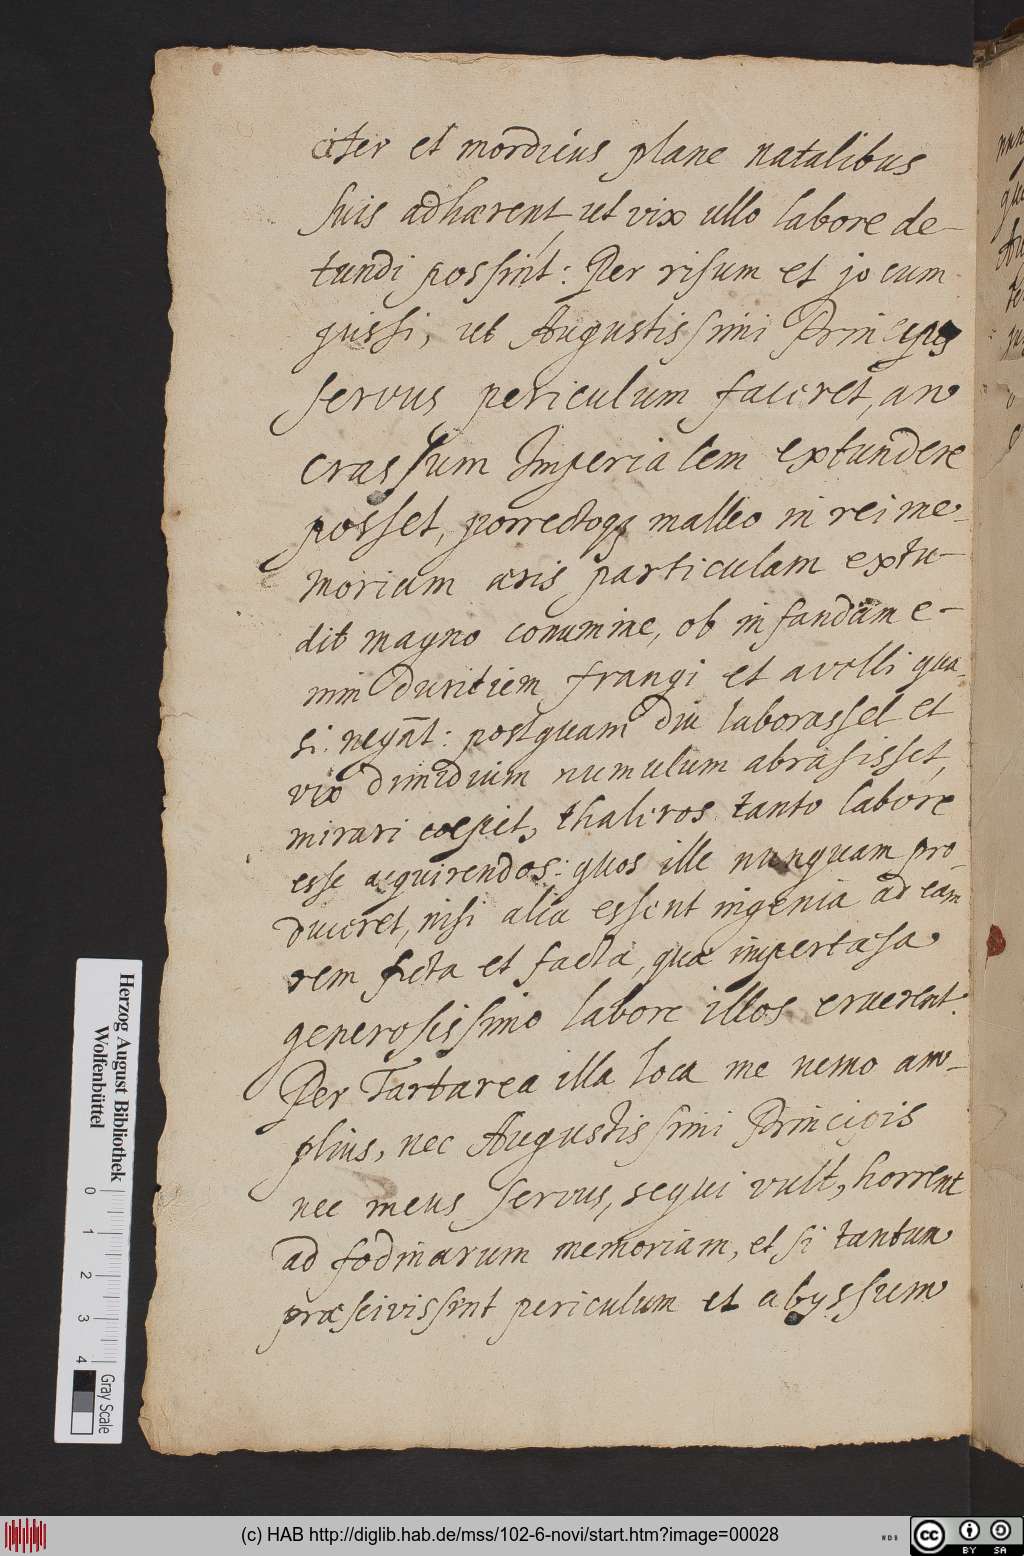 citer et mordicus plane natalibus
suis adhærent, ut vix ullo labore de-
tundi possint: Per risum et jocum
jussi, ut Augustissimi Principis
servus periculum faceret, an
crassum Imperialem extundere
posset, porrectoq3 malleo in rei me-
moriam æris particulam extu-
dit magno conamine, ob infandam e-
nim duritiem frangi et avelli qua-
si negāt: postquam diu laborasset et
vix dimidium numulum abrasisset,
mirari coepit, thaleros tanto labore
esse acquirendos: quos ille nunquam pro-
duceret, nisi alia essent ingenia ad eam
rem ficta et facta, quæ impertæsa
generosissimo labore illos eruerent.
Per Tartarea illa loca me nemo am-
plius, nec Augustissimi Principis
nec meus servus, sequi vult, horrent
ad fodinarum memoriam, et si tantum
præscivissent periculum et abyssum
Herzog August Bibliothek
Wolfenbüttel
0 1 2 3 4
Gray Scale
(c) HAB http://diglib.hab.de/mss/102-6-novi/start.htm?image=00028
WDB
cc BY SA